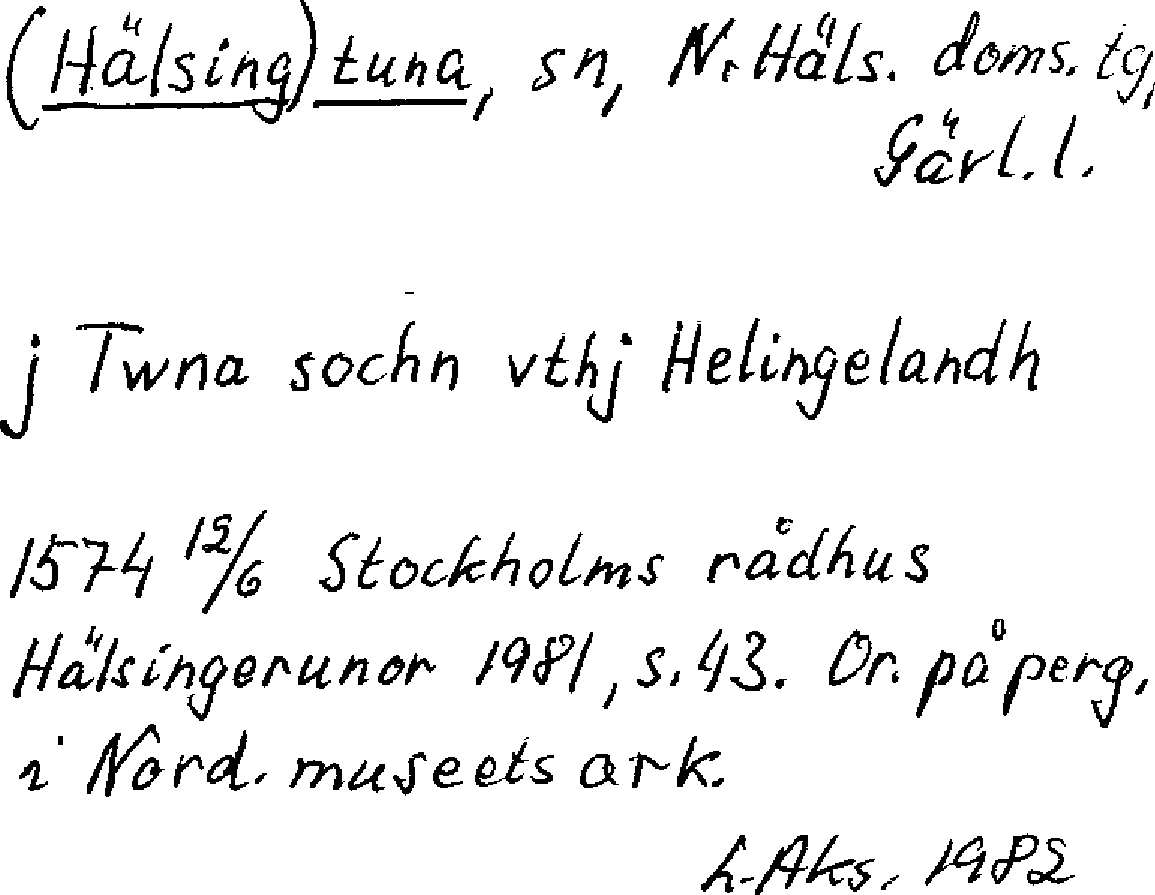 (Hälsing)tuna, sn, N. Häls. doms. tg,
Gävl. l.
j Twna sochn vthj Helingelandh
1574 12/6 Stockholms rådhus
Hälsingerunor 1981, s. 43. Or. på perg.
i Nord. museets ark.
L. Aks. 1982